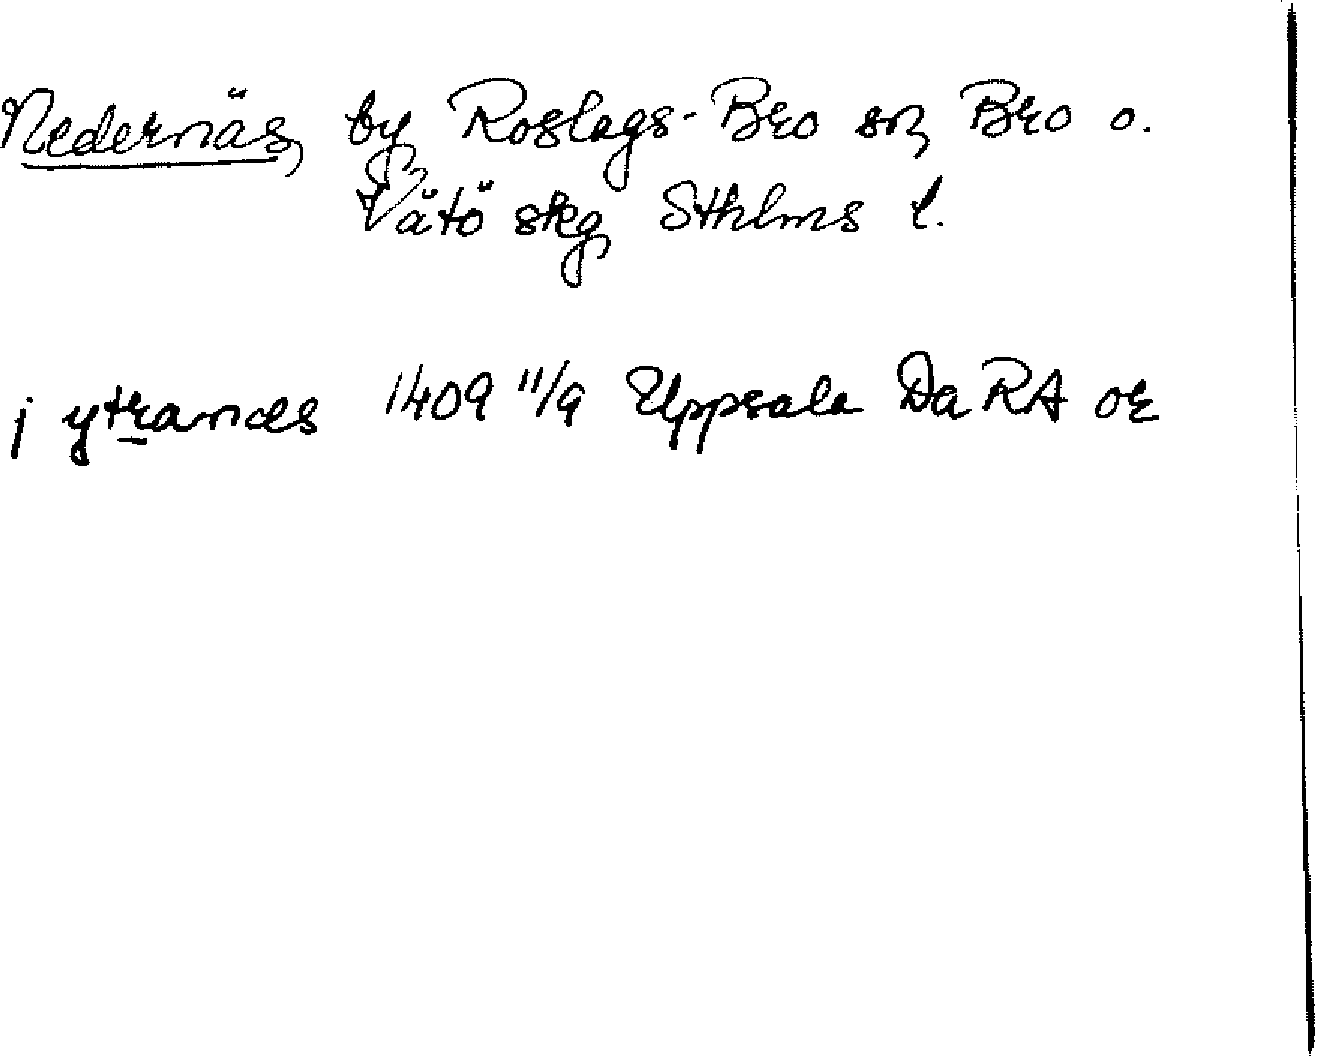 Nedernäs, by Roslags-Bro sn, Bro o.
Vätö skg, Sthlms l.
j ytranæs 1409 11/9 Uppsala DaRA or